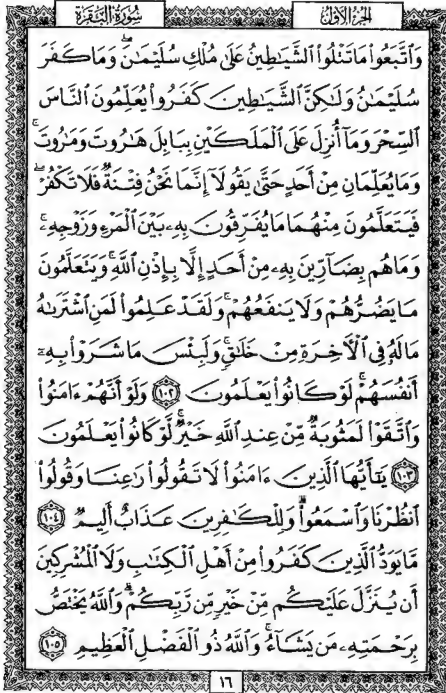 الجزء الأول
سورة البقرة
وَٱتَّبَعُوا۟ مَا تَتْلُوا۟ ٱلشَّيَـٰطِينُ عَلَىٰ مُلْكِ سُلَيْمَـٰنَ ۖ وَمَا كَفَرَ
سُلَيْمَـٰنُ وَلَـٰكِنَّ ٱلشَّيَـٰطِينَ كَفَرُوا۟ يُعَلِّمُونَ ٱلنَّاسَ
ٱلسِّحْرَ وَمَآ أُنزِلَ عَلَى ٱلْمَلَكَيْنِ بِبَابِلَ هَـٰرُوتَ وَمَـٰرُوتَ ۚ
وَمَا يُعَلِّمَانِ مِنْ أَحَدٍ حَتَّىٰ يَقُولَآ إِنَّمَا نَحْنُ فِتْنَةٌ فَلَا تَكْفُرْ ۖ
فَيَتَعَلَّمُونَ مِنْهُمَا مَا يُفَرِّقُونَ بِهِۦ بَيْنَ ٱلْمَرْءِ وَزَوْجِهِۦ ۚ
وَمَا هُم بِضَآرِّينَ بِهِۦ مِنْ أَحَدٍ إِلَّا بِإِذْنِ ٱللَّهِ ۚ وَيَتَعَلَّمُونَ
مَا يَضُرُّهُمْ وَلَا يَنفَعُهُمْ ۚ وَلَقَدْ عَلِمُوا۟ لَمَنِ ٱشْتَرَىٰهُ
مَا لَهُۥ فِى ٱلْـَٔاخِرَةِ مِنْ خَلَـٰقٍ ۚ وَلَبِئْسَ مَا شَرَوْا۟ بِهِۦٓ
أَنفُسَهُمْ ۚ لَوْ كَانُوا۟ يَعْلَمُونَ ١٠٢ وَلَوْ أَنَّهُمْ ءَامَنُوا۟
وَٱتَّقَوْا۟ لَمَثُوبَةٌ مِّنْ عِندِ ٱللَّهِ خَيْرٌ ۖ لَّوْ كَانُوا۟ يَعْلَمُونَ
١٠٣ يَـٰٓأَيُّهَا ٱلَّذِينَ ءَامَنُوا۟ لَا تَقُولُوا۟ رَٰعِنَا وَقُولُوا۟
ٱنظُرْنَا وَٱسْمَعُوا۟ ۗ وَلِلْكَـٰفِرِينَ عَذَابٌ أَلِيمٌ ١٠٤
مَّا يَوَدُّ ٱلَّذِينَ كَفَرُوا۟ مِنْ أَهْلِ ٱلْكِتَـٰبِ وَلَا ٱلْمُشْرِكِينَ
أَن يُنَزَّلَ عَلَيْكُم مِّنْ خَيْرٍ مِّن رَّبِّكُمْ ۗ وَٱللَّهُ يَخْتَصُّ
بِرَحْمَتِهِۦ مَن يَشَآءُ ۚ وَٱللَّهُ ذُو ٱلْفَضْلِ ٱلْعَظِيمِ ١٠٥
١٦